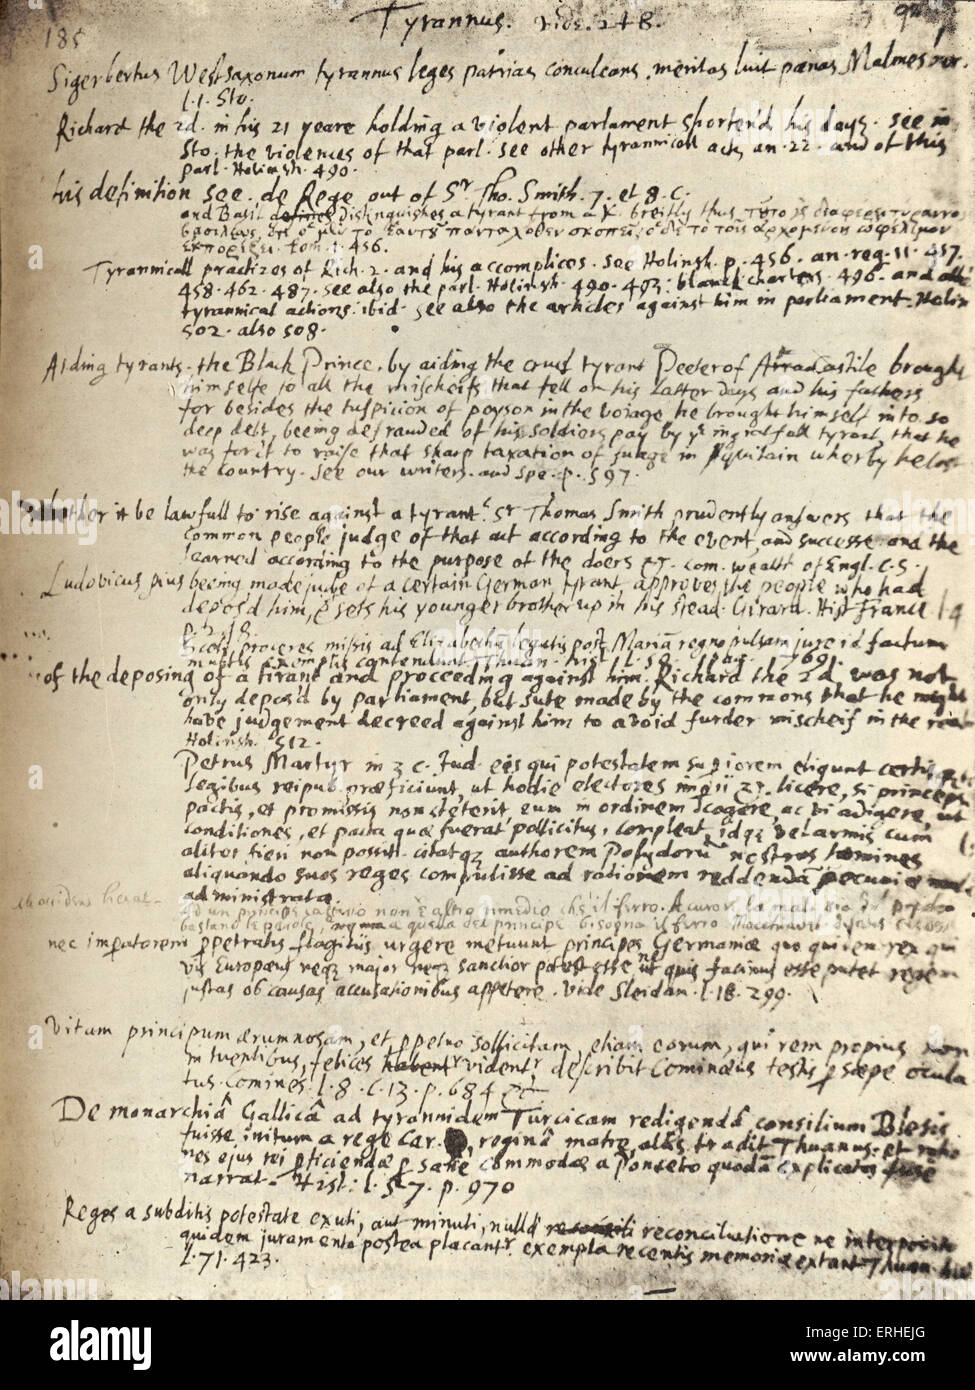 185 Tyrannus. vide. 248.
Sigerbertus Westsaxonum tyrannus leges patrias conculcans, meritas luit pænas Malmesbur.
l. 1. Sto.
Richard the 2d. in his 21 yeare holding a violent parlament shorten'd his days. see in
Sto. the violences of that parl. see other tyrannicall acts an. 22. and of this
parl. Holinsh. 490.
his definition see. de Rege out of Sr Tho. Smith. 7. et 8. c.
and Basil defines distinguishes a tyrant from a K. breifly thus
tom. 1. 456.
Tyrannicall practizes of Rich. 2. and his accomplices. see Holinsh. p. 456. an. reg. 11. 457.
458. 462. 487. see also the parl. Holinsh. 490. 493: blanck charters. 496. and
tyrannical actions. ibid. see also the articles against him in parliament. Holin
502. also 508.
Aiding tyrants. the Black Prince, by aiding the cruel tyrant Peeter of Castile brought
himselfe to all the mischeifs that fell on his latter days and his fathers
for besides the suspicion of poyson in the voiage he brought himself into so
deep debt, beeing defrauded of his soldiers pay by ye ingratfull tyrant, that he
was forc't to raise that sharp taxation of fuage in Aquitain wherby he lost
the country. see our writers. and Spe. p. 597.
whether it be lawfull to rise against a tyrant. Sr Thomas Smith prudently answers that the
common people judge of that act according to the event, and successe. and the
learned according to the purpose of the doers &c. com. wealth of Engl. c. 5.
Ludovicus pius beeing made judge of a certain German tyrant, approves the people who had
depos'd him, & sets his younger brother up in his stead. Girard. Hist. France l 4
Scoti proceres missis ad Elizabetha legatis post Mariā regno pulsam jure id factum
multis exemplis contendunt. Thuan. hist. l. 50. pag. 769.
of the deposing of a tirant and proceeding against him. Richard the 2d. was not
only depos'd by parliament, but sute made by the commons that he might
have judgement decreed against him to avoid furder mischeif in the
Holinsh. 512.
Petrus Martyr in 3 c. Jud. eis qui potestatem superiorem eligunt certisqz
legibus reipub. præficiunt, ut hodie electores imperii &c. licere, si princeps
pactis, et promissis non steterit, eum in ordinem cogere, ac vi adigere, ut
conditiones, et pacta quæ fuerat pollicitus, compleat, idqz vel armis cum
aliter fieri non possit. citatqz authorem Polydorū nostros homines
aliquando suos reges compulisse ad rationem reddendā pecuniæ male
administratæ.
Ad un principe cattivo non è altro rimedio che il ferro. A curar la malattia del popolo
bastano le parole, a quella del principe bisogna il ferro
nec imperatorem perpetratis flagitiis urgere metuunt principes Germaniæ quo quidem rex qui
vis Europæus neqz major neqz sanctior potest esse ne ut quis facinus esse putet regem
justas ob causas accusationibus appetere. vide Sleidan. l. 18. 299.
Vitam principum ærumnosam, et perpetuo sollicitam, etiam eorum, qui rem propius non
intuentibus, felices habentr videntr describit Cominæus testis persæpe ocula
tus. Comines. l. 8. c. 13. p. 684 &c
De monarchiâ Gallicâ ad tyrannidem Turcicam redigendâ consilium Blesis
fuisse initum a rege Car. , reginâ matre, aliis tradit Thuanus. et ratio
nes ejus rei perficiendæ per sane commodas a Ponceto quodā explicatas fuse
narrat. Hist: l. 57. p. 970
Reges a subditis potestate exuti, aut minuti, nullâ reconciliatione ne interposito
quidem juramento postea placantr. exempla recentis memoriæ extant. Thuan.
l. 71. 423.
alamy stock photo
ERHEJG
www.alamy.com